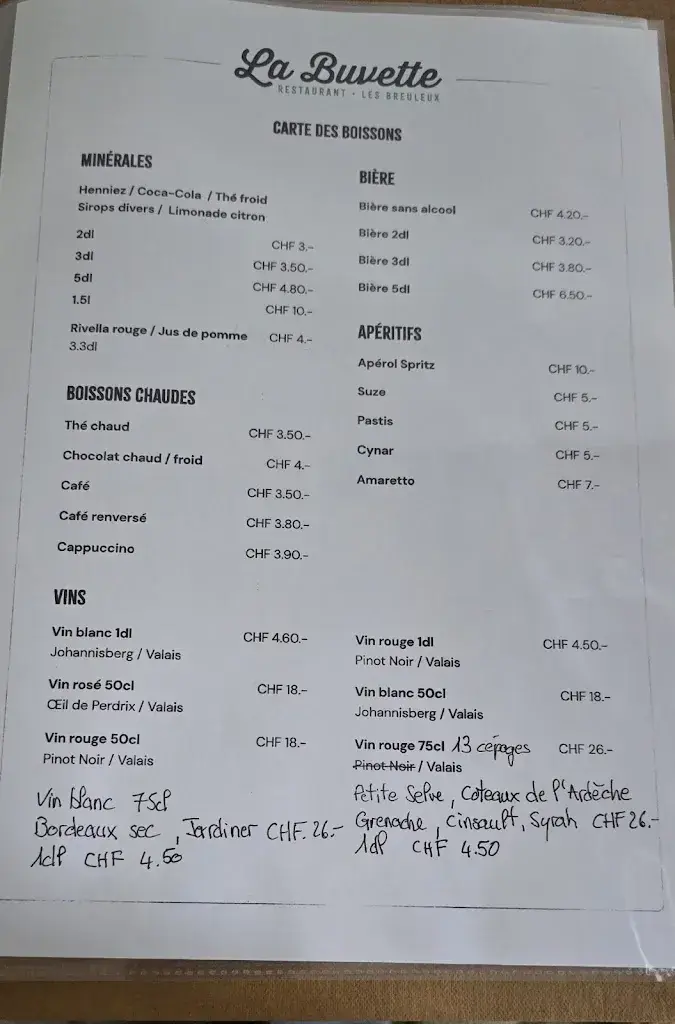 La Buvette
RESTAURANT - LES BREULEUX
CARTE DES BOISSONS
MINÉRALES
Henniez / Coca-Cola / Thé froid
Sirops divers / Limonade citron
2dl CHF 3.-
3dl CHF 3.50.-
5dl CHF 4.80.-
1.5l CHF 10.-
Rivella rouge / Jus de pomme CHF 4.-
3.3dl
BOISSONS CHAUDES
Thé chaud CHF 3.50.-
Chocolat chaud / froid CHF 4.-
Café CHF 3.50.-
Café renversé CHF 3.80.-
Cappuccino CHF 3.90.-
BIÈRE
Bière sans alcool CHF 4.20.-
Bière 2dl CHF 3.20.-
Bière 3dl CHF 3.80.-
Bière 5dl CHF 6.50.-
APÉRITIFS
Apérol Spritz CHF 10.-
Suze CHF 5.-
Pastis CHF 5.-
Cynar CHF 5.-
Amaretto CHF 7.-
VINS
Vin blanc 1dl CHF 4.60.-
Johannisberg / Valais
Vin rosé 50cl CHF 18.-
Œil de Perdrix / Valais
Vin rouge 50cl CHF 18.-
Pinot Noir / Valais
Vin blanc 75cl
Bordeaux sec, Jardiner CHF. 26.-
1dl CHF 4.50
Vin rouge 1dl CHF 4.50.-
Pinot Noir / Valais
Vin blanc 50cl CHF 18.-
Johannisberg / Valais
Vin rouge 75cl 13 cépages CHF 26.-
Pinot Noir / Valais
Petite Selve, Coteaux de l'Ardèche
Grenache, Cinsault, Syrah CHF 26.-
1dl CHF 4.50